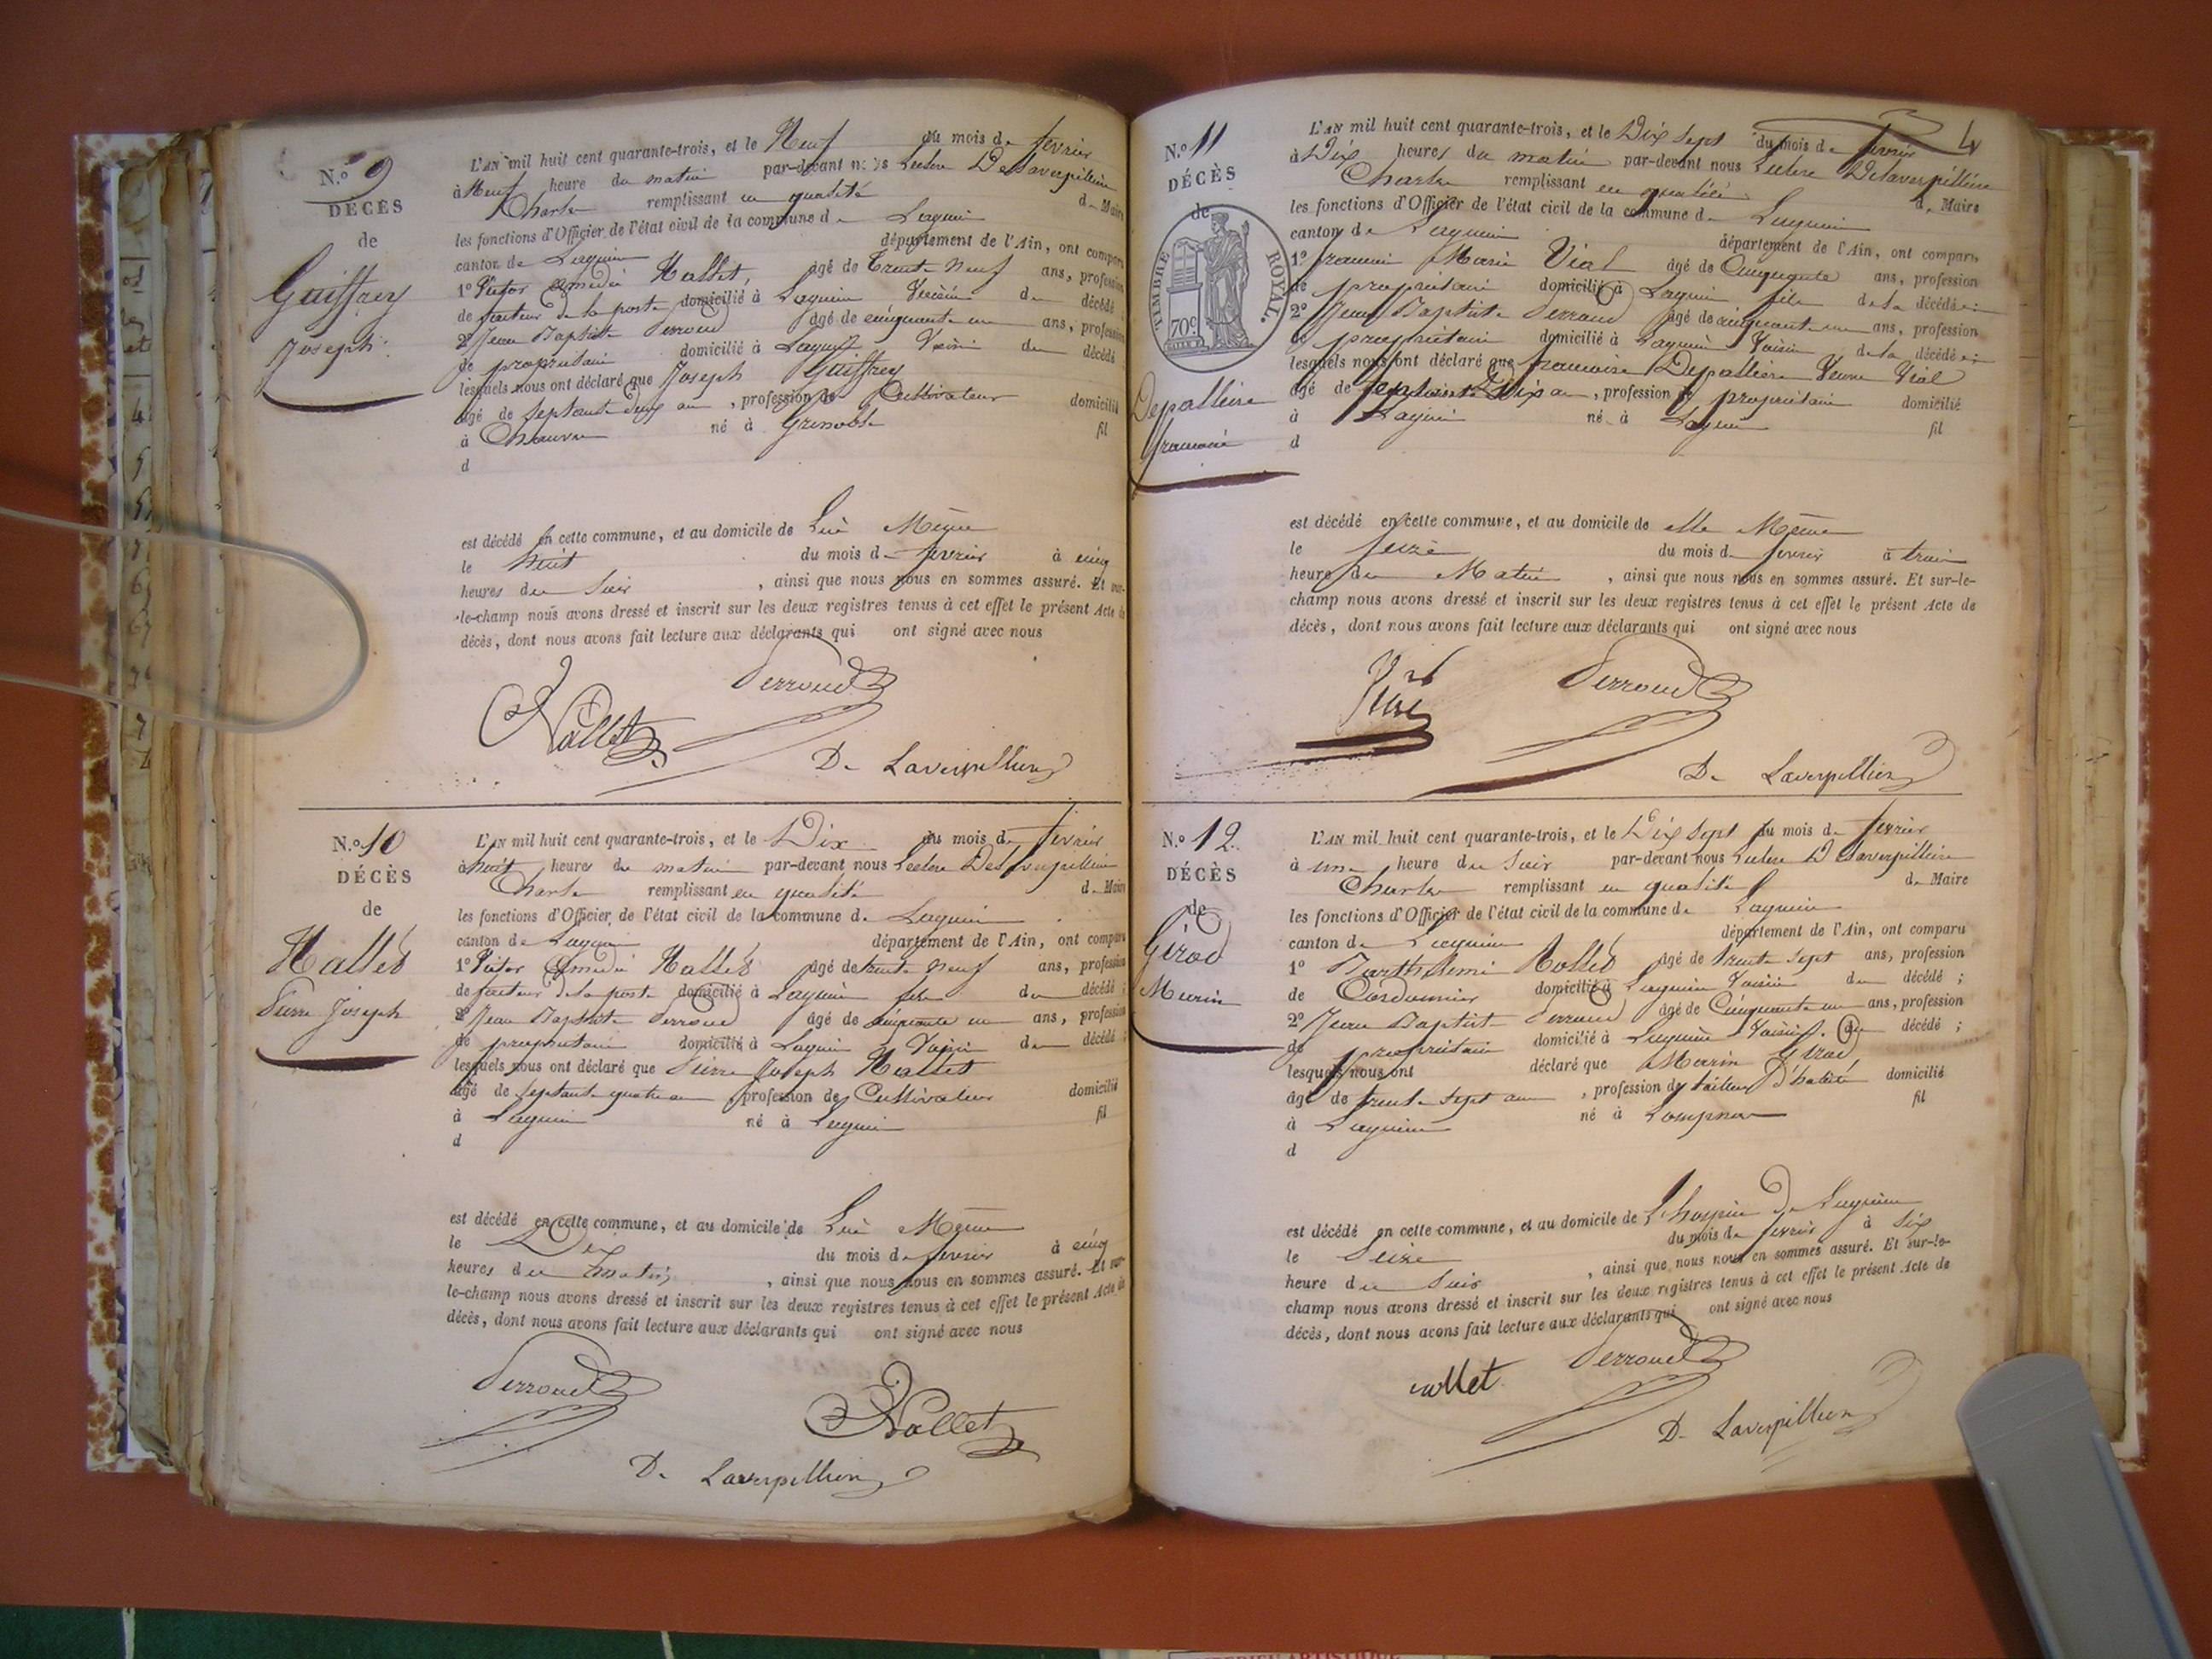 N.º 9
DÉCÈS
de
Guiffrey
Joseph
L'AN mil huit cent quarante-trois, et le Neuf du mois de février
à Neuf heure du matin par-devant nous Leclerc Delaverpillière
Charles remplissant en qualité de Maire
les fonctions d'Officier de l'état civil de la commune de Lagnieu
canton de Lagnieu département de l'Ain, ont comparu
1º Victor Amédée Nallet, âgé de Trente Neuf ans, profession
de facteur de la poste domicilié à Lagnieu Voisin du décédé ;
2º Jean Baptiste Perroud âgé de cinquante un ans, profession
de propriétaire domicilié à Lagnieu Voisin du décédé
lesquels nous ont déclaré que Joseph Guiffrey
âgé de septante deux an , profession de Cultivateur domicilié
à né à Grenoble fil
d
est décédé en cette commune, et au domicile de Lui Même
le huit du mois de février à cinq
heures du Soir , ainsi que nous nous en sommes assuré. Et sur-
le-champ nous avons dressé et inscrit sur les deux registres tenus à cet effet le présent Acte de
décès, dont nous avons fait lecture aux déclarants qui ont signé avec nous
Perroud
Nallet
De Laverpillière
N.º 10
DÉCÈS
de
Nallet
Pierre Joseph
L'AN mil huit cent quarante-trois, et le Dix du mois de février
à huit heures du matin par-devant nous Leclerc Delaverpillière
Charles remplissant en qualité de Maire
les fonctions d'Officier de l'état civil de la commune de Lagnieu
canton de Lagnieu département de l'Ain, ont comparu
1º Victor Amédée Nallet âgé de trente neuf ans, profession
de facteur de la poste domicilié à Lagnieu fils du décédé ;
2º Jean Baptiste Perroud âgé de cinquante un ans, profession
de propriétaire domicilié à Lagnieu Voisin du décédé ;
lesquels nous ont déclaré que Pierre Joseph Nallet
âgé de septante quatre an profession de Cultivateur domicilié
à Lagnieu né à Lagnieu fil
d
est décédé en cette commune, et au domicile de Lui Même
le Dix du mois de février à cinq
heures du matin , ainsi que nous nous en sommes assuré. Et sur-
le-champ nous avons dressé et inscrit sur les deux registres tenus à cet effet le présent Acte de
décès, dont nous avons fait lecture aux déclarants qui ont signé avec nous
Perroud
Nallet
De Laverpillière
4
N.º 11
DÉCÈS
de
TIMBRE ROYAL.
70c
Depallière
Francoise
L'AN mil huit cent quarante-trois, et le Dix Sept du mois de février
à Dix heures du matin par-devant nous Leclerc Delaverpillière
Charles remplissant en qualité de Maire
les fonctions d'Officier de l'état civil de la commune de Lagnieu
canton de Lagnieu département de l'Ain, ont comparu
1º Marie Vial âgé de Cinquante ans, profession
de propriétaire domicilié à Lagnieu fils de la décédée :
2º Jean Baptiste Perroud âgé de cinquante un ans, profession
de propriétaire domicilié à Lagnieu Voisin de la décédée :
lesquels nous ont déclaré que francoise Depallière Veuve Vial
âgé de septante Dix an , profession de propriétaire domicilié
à Lagnieu né à Lagnieu fil
d
est décédé en cette commune, et au domicile de elle Même
le seize du mois de février à trois
heure du Matin , ainsi que nous nous en sommes assuré. Et sur-le-
champ nous avons dressé et inscrit sur les deux registres tenus à cet effet le présent Acte de
décès, dont nous avons fait lecture aux déclarants qui ont signé avec nous
Perroud
De Laverpillière
N.º 12
DÉCÈS
de
Girod
Marin
L'AN mil huit cent quarante-trois, et le Dix Sept du mois de février
à une heure du Soir par-devant nous Leclerc Delaverpillière
Charles remplissant en qualité de Maire
les fonctions d'Officier de l'état civil de la commune de Lagnieu
canton de Lagnieu département de l'Ain, ont comparu
1º Barthélemi Nollet âgé de trente sept ans, profession
de Cordonnier domicilié à Lagnieu Voisin du décédé ;
2º Jean Baptiste Perroud âgé de Cinquante un ans, profession
de propriétaire domicilié à Lagnieu Voisin du décédé ;
lesquels nous ont déclaré que Marin Girod
âgé de trente sept an , profession de tailleur D'habits domicilié
à Lagnieu né à fil
d
est décédé en cette commune, et au domicile de L'hospice de Lagnieu
le Seize du mois de février à Six
heure du Soir , ainsi que nous nous en sommes assuré. Et sur-le-
champ nous avons dressé et inscrit sur les deux registres tenus à cet effet le présent Acte de
décès, dont nous avons fait lecture aux déclarants qui ont signé avec nous
Perroud
nollet
De Laverpillière